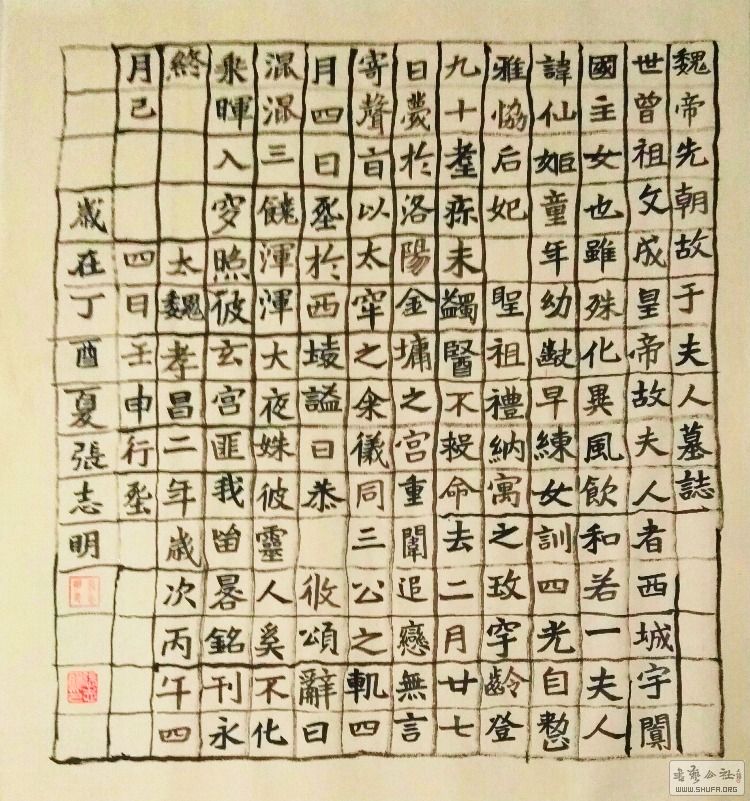 魏帝先朝故于夫人墓誌
世曾祖文成皇帝故夫人者西城宇闐
國主女也雖殊化異風飲和若一夫人
諱仙姬童年幼齔早練女訓四光自整
雅協后妃 聖祖禮納寓之玫宇齡登
九十耋疹未蠲醫不救命去二月廿七
日薨於洛陽金墉之宮重闈追戀無言
寄聲旨以太牢之祭儀同三公之軌四
月四日塟於西堎謚曰恭 攸頌辭曰
混混三饒渾渾大夜姝彼靈人奚不化
乘暉入穸照彼玄宮匪我留晷銘刊永
終 太魏孝昌二年歲次丙午四
月己 四日壬申行塟
歲在丁酉夏張志明
書藝公社
WWW.SHUFA.ORG